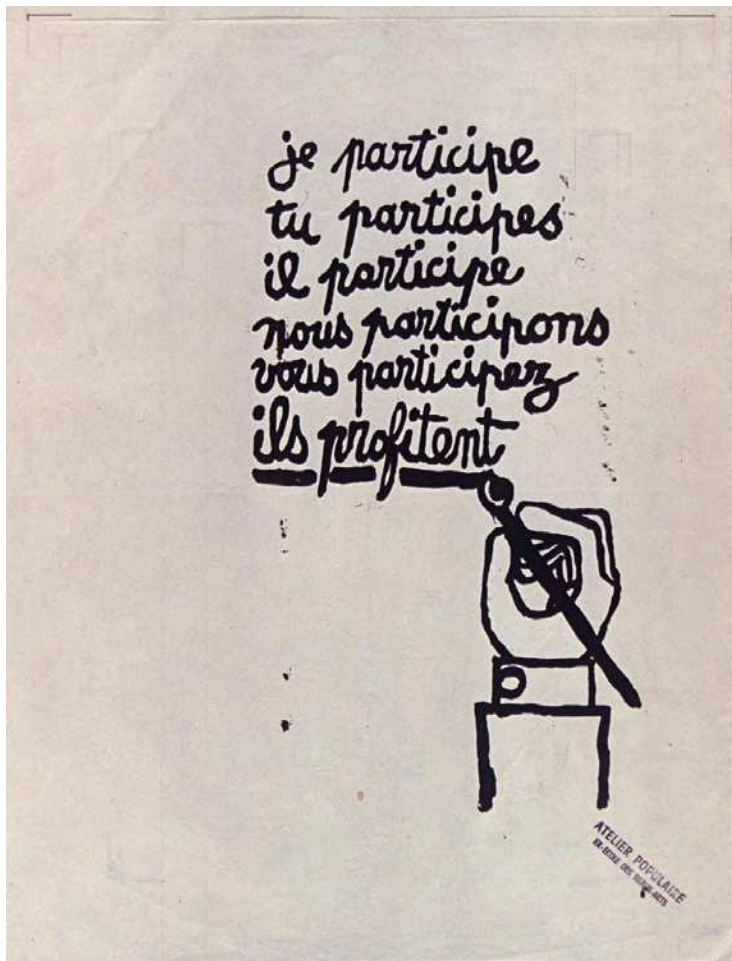 je participe
tu participes
il participe
nous participons
vous participez
ils profitent
ATELIER POPULAIRE
EX-ECOLE DES BEAUX-ARTS